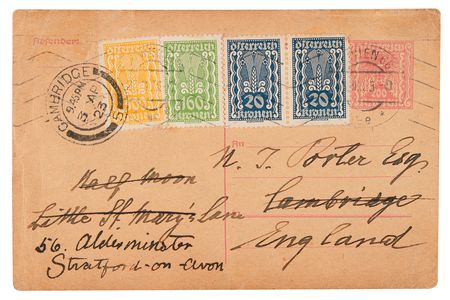 Absender:
österreich österreich österreich österreich
160 20 20 200
kronen kronen kronen kronen
CAMBRIDGE
3 AP
23
An
N. T. Porter Esq.
Half Moon
Cambridge
Little St. Mary's Lane
England
56. Alderminster
Stratford-on-Avon